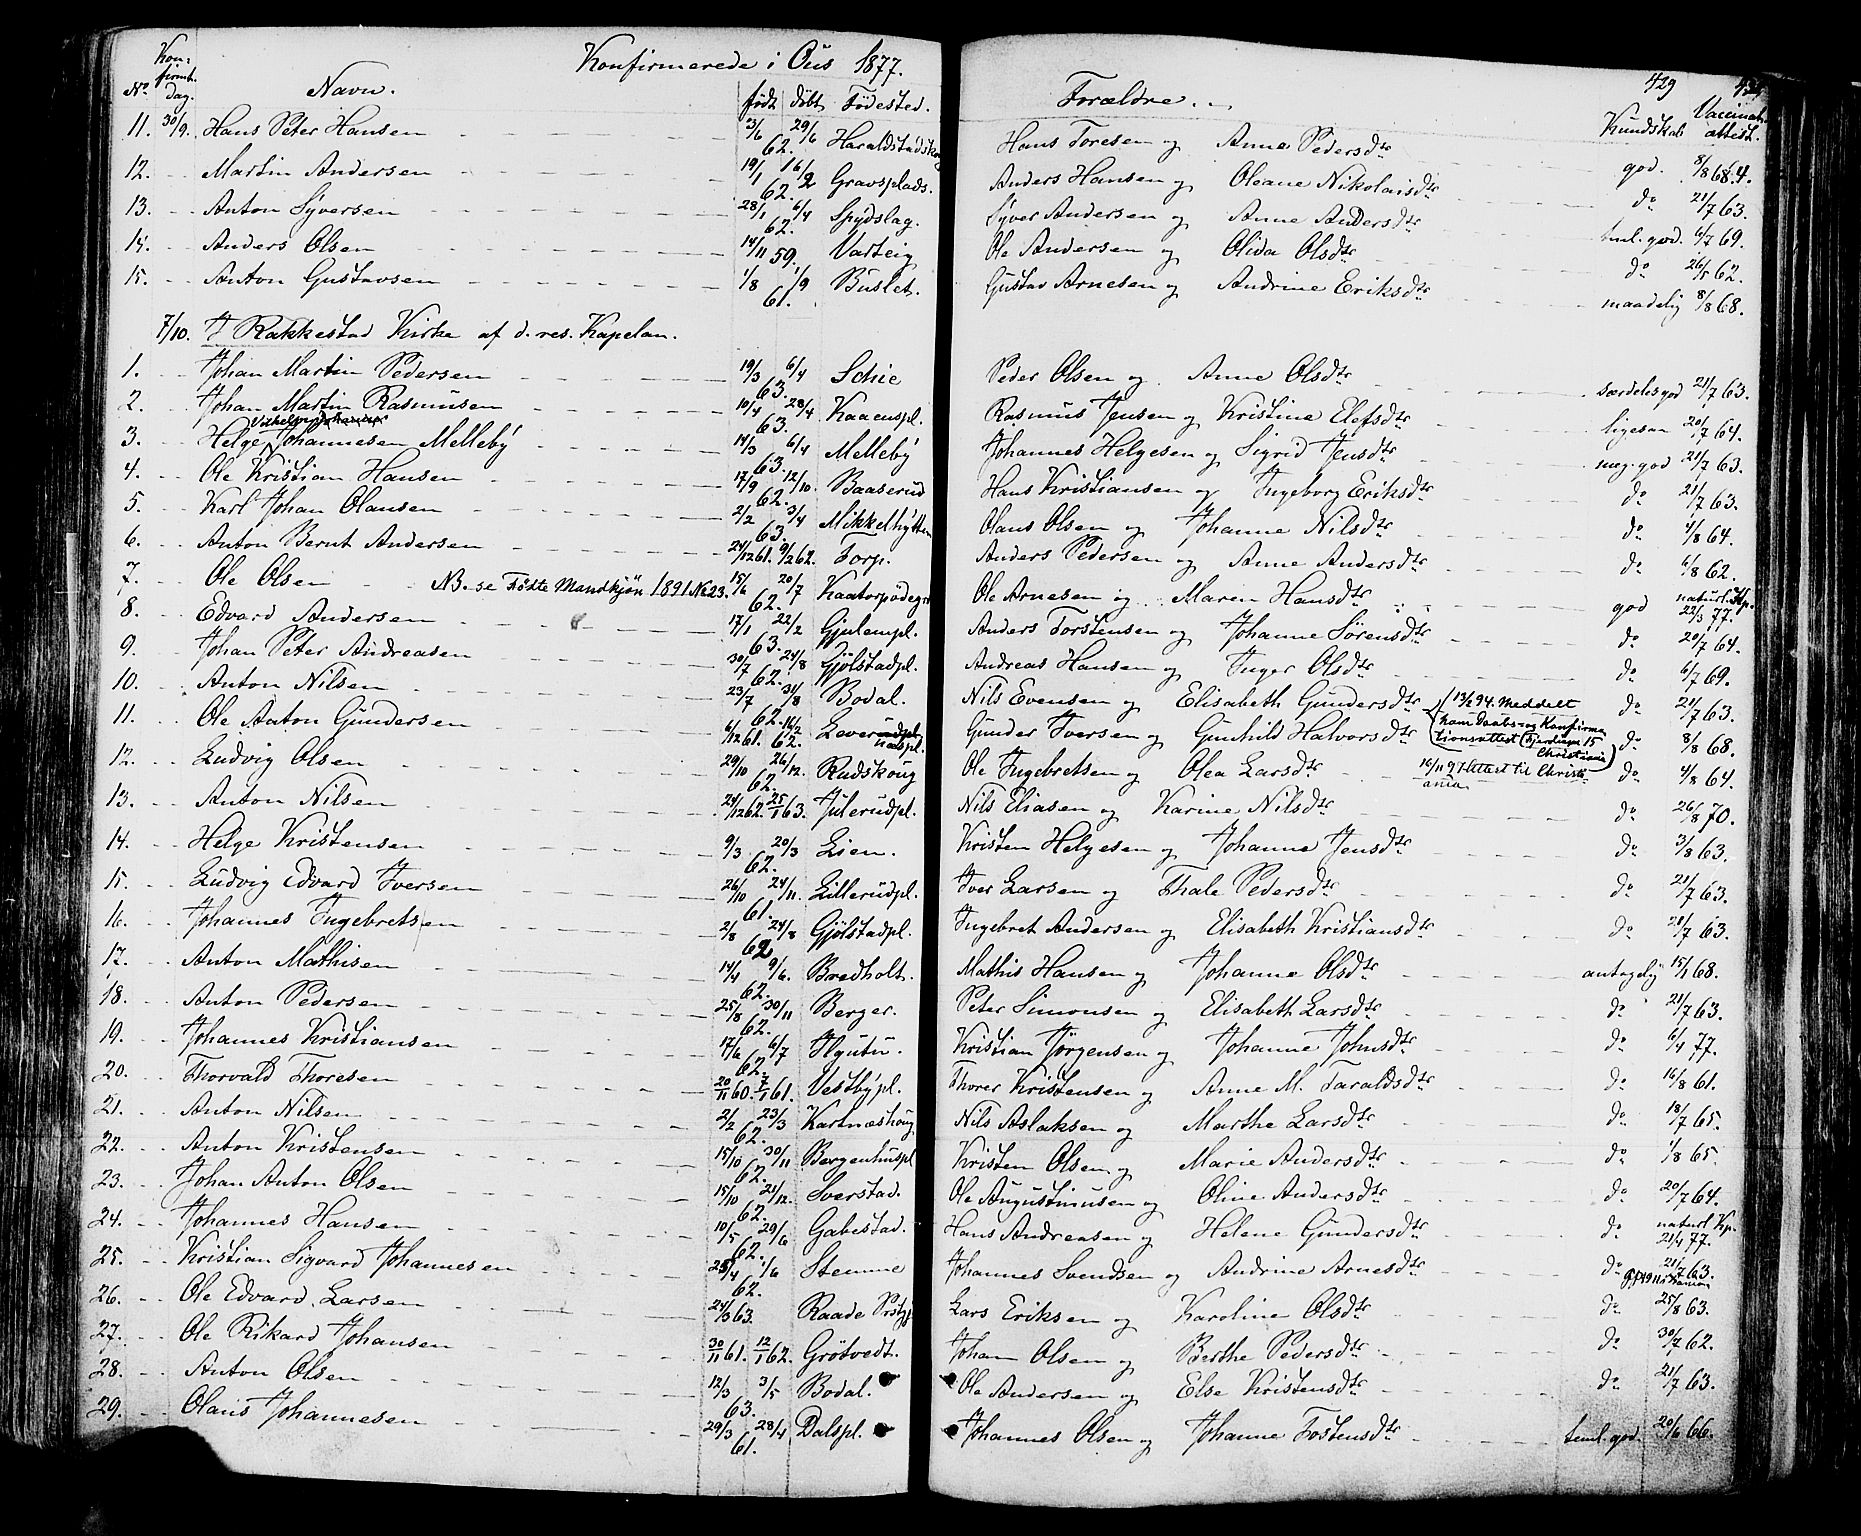 Konfirmerede i Øus 1877.
429
No. Konfirmt. dag. Navn. født døbt Fødested. Forældre. Kundskab Vaccinat. attest.
11. 30/9. Hans Peter Hansen 3/6 29/6 62. Haraldstadskoug Hans Toresen og Anna Pedersdtr god. 8/8 68.
12. Martin Andersen 19/1 16/2 62. Gravsplads. Anders Hansen og Oleane Nikolaisdtr do 21/7 63.
13. Anton Syversen 28/1 6/4 62. Spydslag. Syver Andersen og Anne Andersdtr teml. god. 6/7 69.
14. Anders Olsen 14/11 59. Varteig Ole Andersen og Olida Olsdtr do 26/5 62.
15. Anton Gustavsen 1/8 1/9 61. Buslet. Gustav Arnesen og Andrine Eriksdtr maadelig 8/8 68.
7/10. I Rakkestad Kirke af d. res. Kapelan.
1. Johan Martin Pedersen 19/3 6/4 63. Schie Peder Olsen og Anne Olsdtr særdeles god 21/7 63.
2. Johan Martin Rasmusen 10/4 28/4 63. Kaaenspl. Rasmus Jensen og Kristine Elefsdtr ligesaa 20/7 64.
3. Helge Johannesen Melleby 14/3 6/4 63. Melleby Johannes Helgesen og Sigrid Jensdtr meg. god 21/7 63.
4. Ole Kristian Hansen 17/9 12/10 62. Baaserud Hans Kristiansen og Ingeborg Eriksdtr do 21/7 63.
5. Karl Johan Olausen 2/2 3/4 63. Mikkelhytten Olaus Olsen og Johanne Nilsdtr do 4/8 64.
6. Anton Bernt Andersen 24/12 61. 9/2 62. Torp. Anders Pedersen og Anne Andersdtr do 6/8 62.
7. Ole Olsen NB. se Fødte Mandkjøn 1891 No 23. 15/6 20/7 62. Kaatorpødeg. Ole Arnesen og Maren Hansdtr god naturl. Kp. 22/3 77.
8. Edvard Andersen 17/1 22/2 63. Gjulempl. Anders Torstensen og Johanne Sørensdtr do 20/7 64.
9. Johan Peter Andreasen 30/7 24/8 62. Gjølstadpl. Andreas Hansen og Inger Olsdtr do 6/7 69.
10. Anton Nilsen 23/7 31/8 62. Bodal. Nils Evensen og Elisabeth Gundersdtr do 21/7 63.
11. Ole Anton Gundersen 6/12 61. 16/2 62. Gunder Iversen og Gunhild Halvorsdtr (13/2 94. Meddelt ham Daabs- og Konfirmationsattest Christiania) do 8/8 68.
12. Ludvig Olsen 29/10 26/12. 62. Rudskoug Ole Ingebretsen og Olea Larsdtr 16/11 97 Attest til Christiania do 4/8 64.
13. Anton Nilsen 24/12 62. 25/1 63. Julerudpl. Nils Eliasen og Karine Nilsdtr do 26/8 70.
14. Helge Kristensen 9/3 20/3 62. Lien. Kristen Helgesen og Johanne Jensdtr do 3/8 63.
15. Ludvig Edvard Iversen 26/10 24/11. 61. Lillerudpl. Iver Larsen og Thale Pedersdtr do 21/7 63.
16. Johannes Ingebretsen 2/8 24/8 62 Gjølstadpl. Ingebret Andersen og Elisabeth Kristiansdtr do 21/7 63.
17. Anton Mathisen 14/4 9/6. 62. Bredholt. Mathis Hansen og Johanne Olsdtr antagelig 15/1 68.
18. Anton Pedersen 25/8 30/11 62. Berger. Peter Simonsen og Elisabeth Larsdtr do 21/7 63.
19. Johannes Kristiansen 17/6 6/7 62. Kristian Jørgensen og Johanne Johnsdtr do 6/4 77.
20. Thorvald Thoresen 20/11 60. 7/1 61. Vestbypl. Thorer Kristensen og Anne M. Taraldsdtr do 16/8 61.
21. Anton Nilsen 2/2 23/3 62. Kartnæskoug Nils Aslaksen og Marthe Larsdtr do 18/7 65.
22. Anton Kristensen 15/10 30/11 62. Bergenhuspl Kristen Olsen og Marie Andersdtr do 1/8 65.
23. Johan Anton Olsen 15/10 21/12. 62. Sverstad. Ole Augustinusen og Oline Andersdtr do 20/7 64.
24. Johannes Hansen 10/5 29/6 62. Gabestad. Hans Andreasen og Helene Gundersdtr do naturl. Kp. 21/4 77.
25. Kristian Sigvard Johannesen 25/4 1/6 62. Stemme Johannes Svendsen og Andrine Arnesdtr do 21/7 63.
26. Ole Edvard Larsen 24/3 63. Raade Prstgj. Lars Eriksen og Karoline Olsdtr do 25/8 63.
27. Ole Rikard Johansen 30/11 61. 12/1 62. Grøtvedt. Johan Olsen og Berthe Pedersdtr do 30/7 62.
28. Anton Olsen 12/3 3/5 63. Bodal. Ole Andersen og Else Kristensdtr do 21/7 63.
29. Olaus Johannesen 29/3 28/4 61. Dalspl. Johannes Olsen og Johanne Tostensdtr teml. god. 20/6 66.